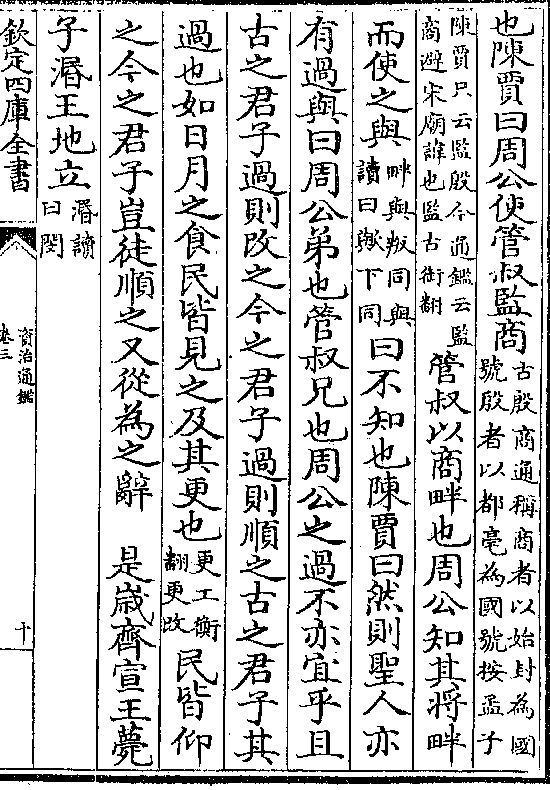 也陳賈曰周公使管叔監商古殷商通稱商者以始封為國號殷者以都亳為國號按孟子
陳賈只云監殷今通鑑云監商避宋廟諱也監古銜翻管叔以商畔也周公知其將畔
而使之與畔與叛同與讀曰歟下同曰不知也陳賈曰然則聖人亦
有過與曰周公弟也管叔兄也周公之過不亦宜乎且
古之君子過則改之今之君子過則順之古之君子其
過也如日月之食民皆見之及其更也更工衡翻更改民皆仰
之今之君子豈徒順之又從為之辭 是歲齊宣王薨
子湣王地立湣讀曰閔
欽定四庫全書
資治通鑑
卷三
十